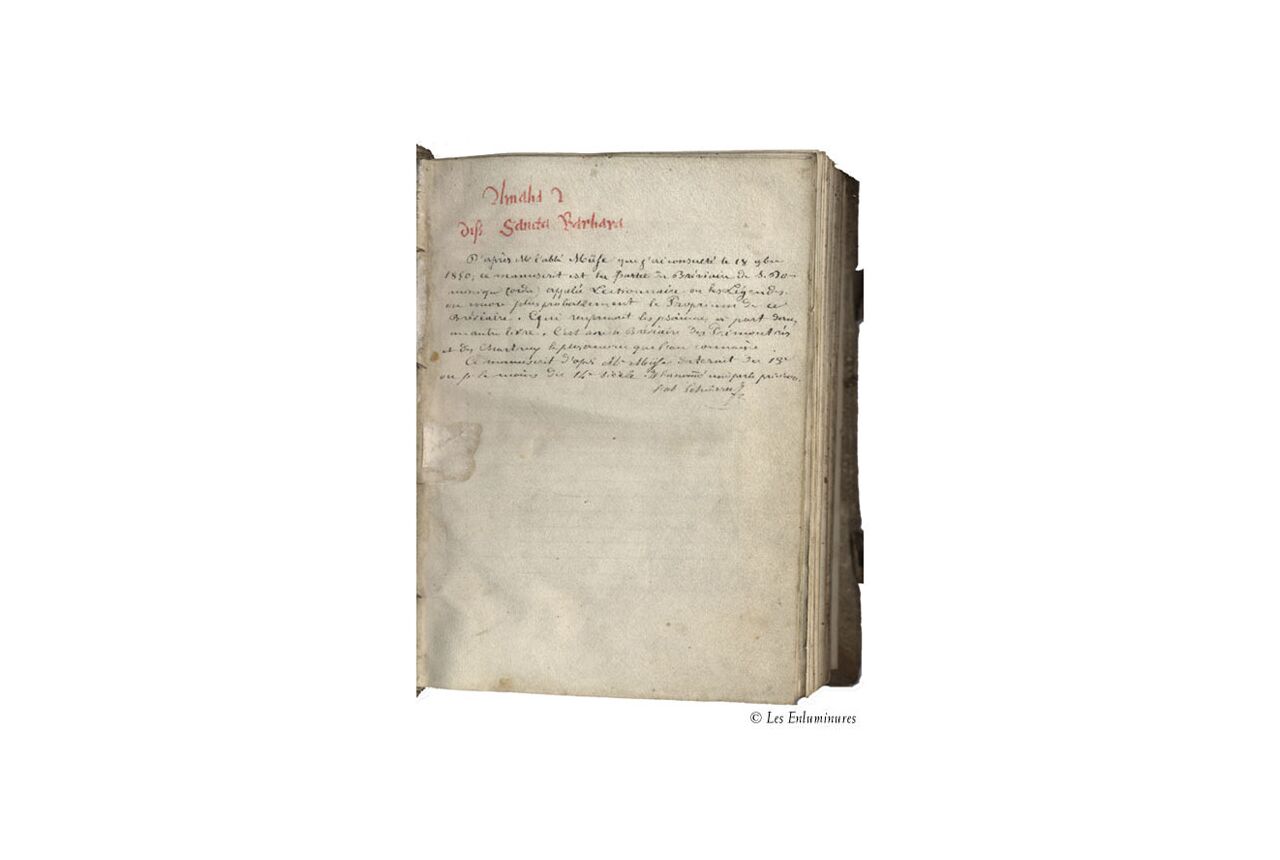 Sancta Barbara
D'après Mr l'abbé Musse que j'ai consulté le 18 9bre
1850, ce manuscrit est la partie du Bréviaire de S. Do-
minique (ordre) appelée Lectionnaire ou les Légendes
ou encore plus probablement le Proprium de ce
Bréviaire. Ce qui les psaumes, à part dans
un autre livre. C'est avec le Bréviaire des Prémontrés
et des Chartreux le plus ancien que l'on connaisse.
Ce manuscrit d'après Mr Musse daterait du 13e
ou p. le moins du 14e siècle
© Les Enluminures